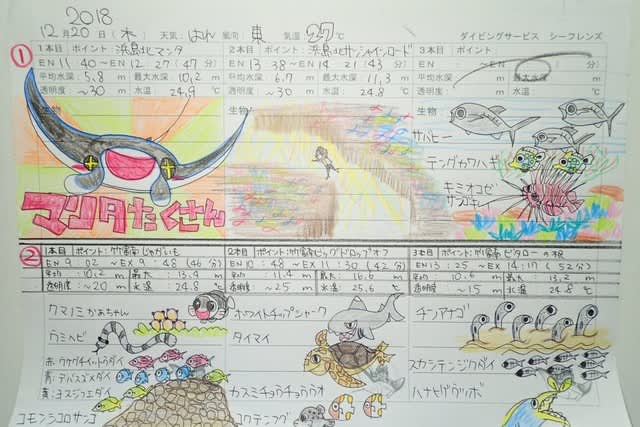 2018
12月20日(木) 天気:はれ 風向:東 気温:27℃ ダイビングサービス シーフレンズ
①
1本目 ポイント:浜島北マンタ
EN 11:40 ~ EX 12:27 (47分)
平均水深:5.8 m 最大水深:10.2 m
透明度:~30 m 水温:24.9 ℃
生物
マンタたくさん
2本目 ポイント:浜島北サンシャインロード
EN 13:38 ~ EX 14:21 (43分)
平均水深:6.7 m 最大水深:11.3 m
透明度:~30 m 水温:24.8 ℃
生物
3本目 ポイント:
EN : ~ EN : (分)
平均水深: m 最大水深: m
透明度: m 水温: ℃
生物
テングカワハギ
キミオコゼ
②
1本目 ポイント:竹富南 じゃがいも
EN 9:02 ~ EX 9:48 (46分)
平均:10.2 m 最大:13.4 m
透明度:~20 m 水温:24.8 ℃
クマノミかあちゃん
ウミヘビ
赤:ウケグチイットウダイ
青:デバスズメダイ
黄:ヨスジフエダイ
コモンシコロサンゴ
2本目 ポイント:竹富南ビッグドロップオフ
EN 10:48 ~ EX 11:30 (42分)
平均:11.4 m 最大:16.6 m
透明度:~25 m 水温:25.6 ℃
ホワイトチップシャーク
タイマイ
カスミチョウチョウウオ
コクテンフグ
3本目 ポイント:竹富南 ビタローの根
EN 13:25 ~ EX 14:17 (52分)
平均:10.6 m 最大:13.2 m
透明度:~15 m 水温:24.8 ℃
チンアナゴ
スカシテンジクダイ
ハナヒゲウツボ